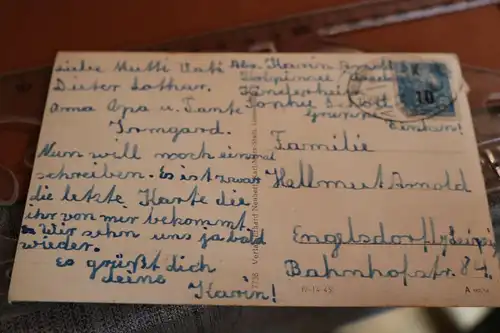 Liebe Mutti Vati
Dieter Lothar.
Oma Opa u. Tante
Irmgard.
Nun will noch einmal
schreiben. Es ist zwar
die letzte Karte die
ihr von mir bekommt.
Wir sehn uns ja bald
wieder.
Es grüßt dich
deine
Karin!
Abs. Karin Arnold
Kinderheim
Gruppe
10
Familie
Hellmut Arnold
Engelsdorf b/Leipzig
Bahnhofstr. 84.